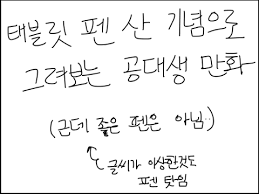 태블릿 펜 산 기념으로
그려보는 공대생 만화
(근데 좋은 펜은 아님..)
글씨가 이상한것도
펜 탓임